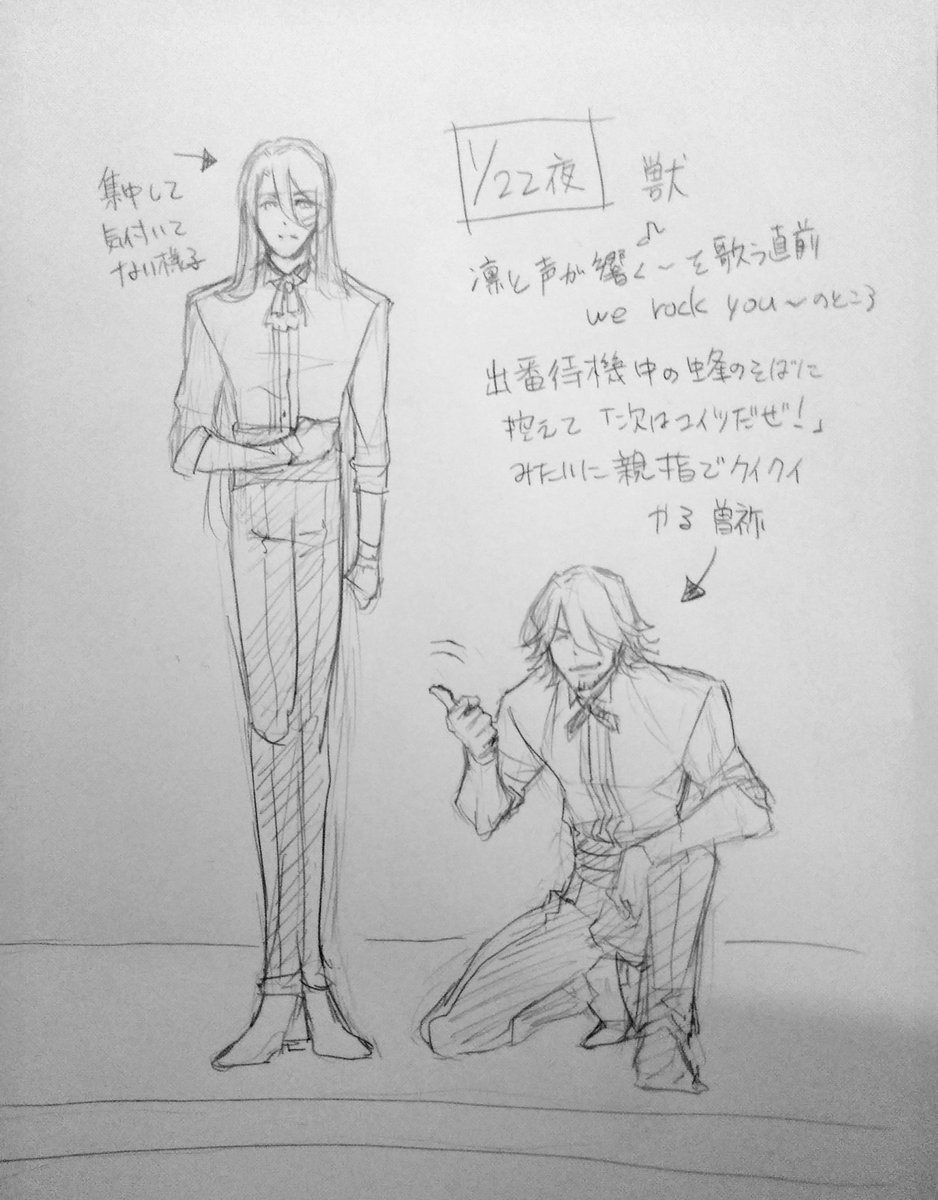 集中して
気付いて
ない様子
1/22夜
獣
凛と声が響く〜♪を歌う直前
we rock you〜のところ
出番待機中の蜂のそばに
控えて「次はコイツだぜ!」
みたいに親指でクイクイ
やる曽祢